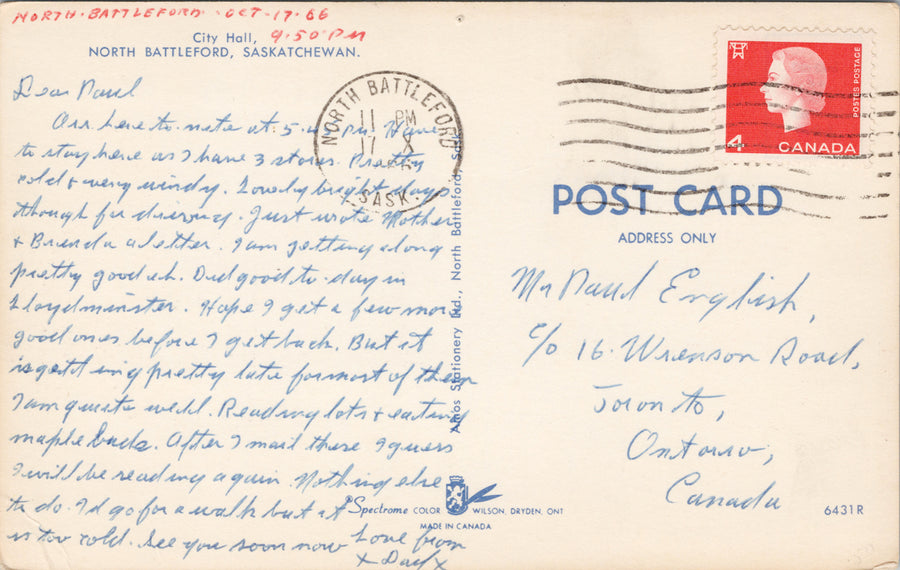 NORTH. BATTLEFORD. OCT-17-66
9.50 PM
City Hall,
NORTH BATTLEFORD, SASKATCHEWAN.
Dear Paul
Arr. here to-nite at 5- PM. Have
to stay here as I have 3 stores. Pretty
cold & very windy. Lovely bright days
though for driving. Just wrote Mother
& Brenda a letter. I am getting along
pretty good eh. Did good to-day in
Lloydminster. Hope I get a few more
good ones before I get back. But it
is getting pretty late for most of them
I am quite well. Reading lots & eating
maple buds. After I mail these I guess
I will be reading again. Nothing else
to do. I'd go for a walk but it
is too cold. See you soon now Love from
x Dad x
NORTH BATTLEFORD
11 PM
17 X
SASK.
Amos Stationery Ltd., North Battleford, Sask.
POSTES POSTAGE
4
CANADA
POST CARD
ADDRESS ONLY
Mr Paul English,
c/o 16. Wrenson Road,
Toronto,
Ontario,
Canada
Spectrome COLOR WILSON, DRYDEN, ONT
MADE IN CANADA
6431R